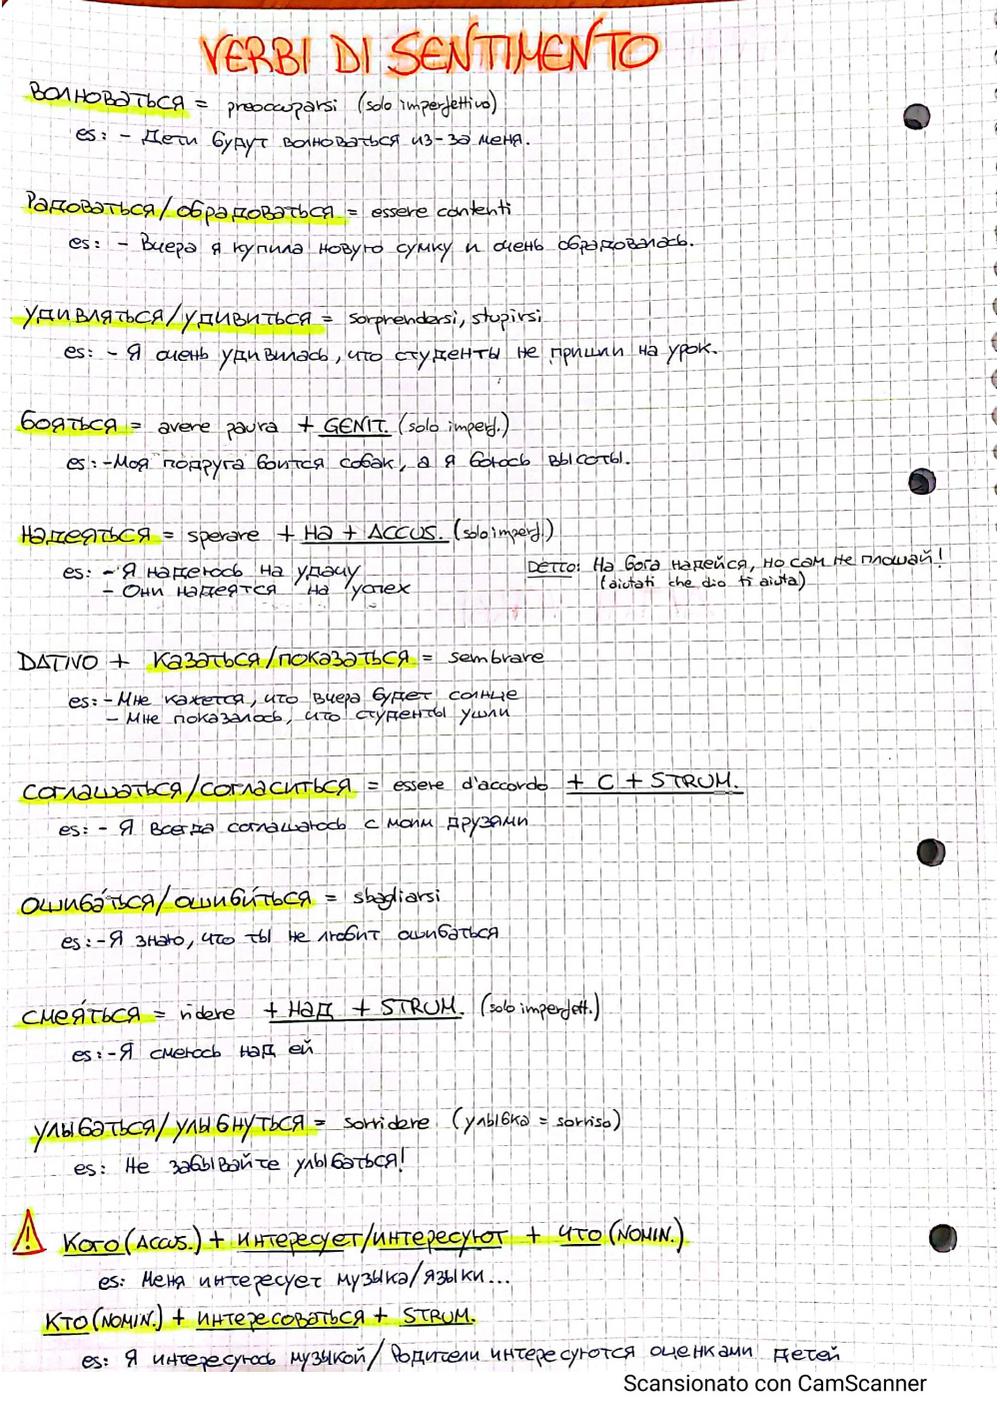 VERBI DI SENTIMENTO
Волноваться = preoccuparsi (solo imperfettivo)
es: - Дети будут волноваться из-за меня.
Радоваться/обрадоваться = essere contenti
es: - Вчера я купила новую сумку и очень обрадовалась.
удивляться/удивиться = sorprendersi, stupirsi
es: - Я очень удивилась, что студенты не пришли на урок.
бояться = avere paura + GENIT. (solo imperf.)
es: - Моя подруга боится собак, а я боюсь высоты.
надеяться = sperare + на + ACCUS. (solo imperf.)
es: - Я надеюсь на удачу
- Они надеятся на успех
DETTO: На бога надейся, но сам не плошай!
(aiutati che dio ti aiuta)
DATIVO + казаться/показаться = sembrare
es: - Мне кажется, что вчера будет солнце
- Мне показалось, что студенты ушли
соглашаться/согласиться = essere d'accordo + С + STRUM.
es: - Я всегда соглашаюсь с моим друзями
ошиба́ться/ошиби́ться = sbagliarsi
es: - Я знаю, что ты не любит ошибаться
смея́ться = ridere + над + STRUM. (solo imperfett.)
es: - Я смеюсь над ей
улыбаться/улыбнуться = sorridere (улыбка = sorriso)
es: Не забывайте улыбаться!
Кого (ACCUS.) + интересует/интересуют + что (NOMIN.)
es: Меня интересует музыка/языки...
Кто (NOMIN.) + интересоваться + STRUM.
es: Я интересуюсь музыкой/Родители интересуются оценками детей
Scansionato con CamScanner